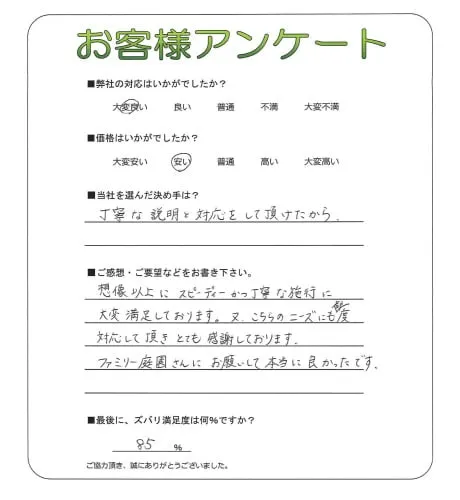 お客様アンケート
■弊社の対応はいかがでしたか？
大変良い　良い　普通　不満　大変不満
■価格はいかがでしたか？
大変安い　安い　普通　高い　大変高い
■当社を選んだ決め手は？
丁寧な説明と対応をして頂けたから.
■ご感想・ご要望などをお書き下さい。
想像以上にスピーディーかつ丁寧な施行に
大変満足しております。又、こちらのニーズにも度
対応して頂きとても感謝しております.
ファミリー庭園さんにお願いして本当に良かったです.
■最後に、ズバリ満足度は何％ですか？
85 %
ご協力頂き、誠にありがとうございました。